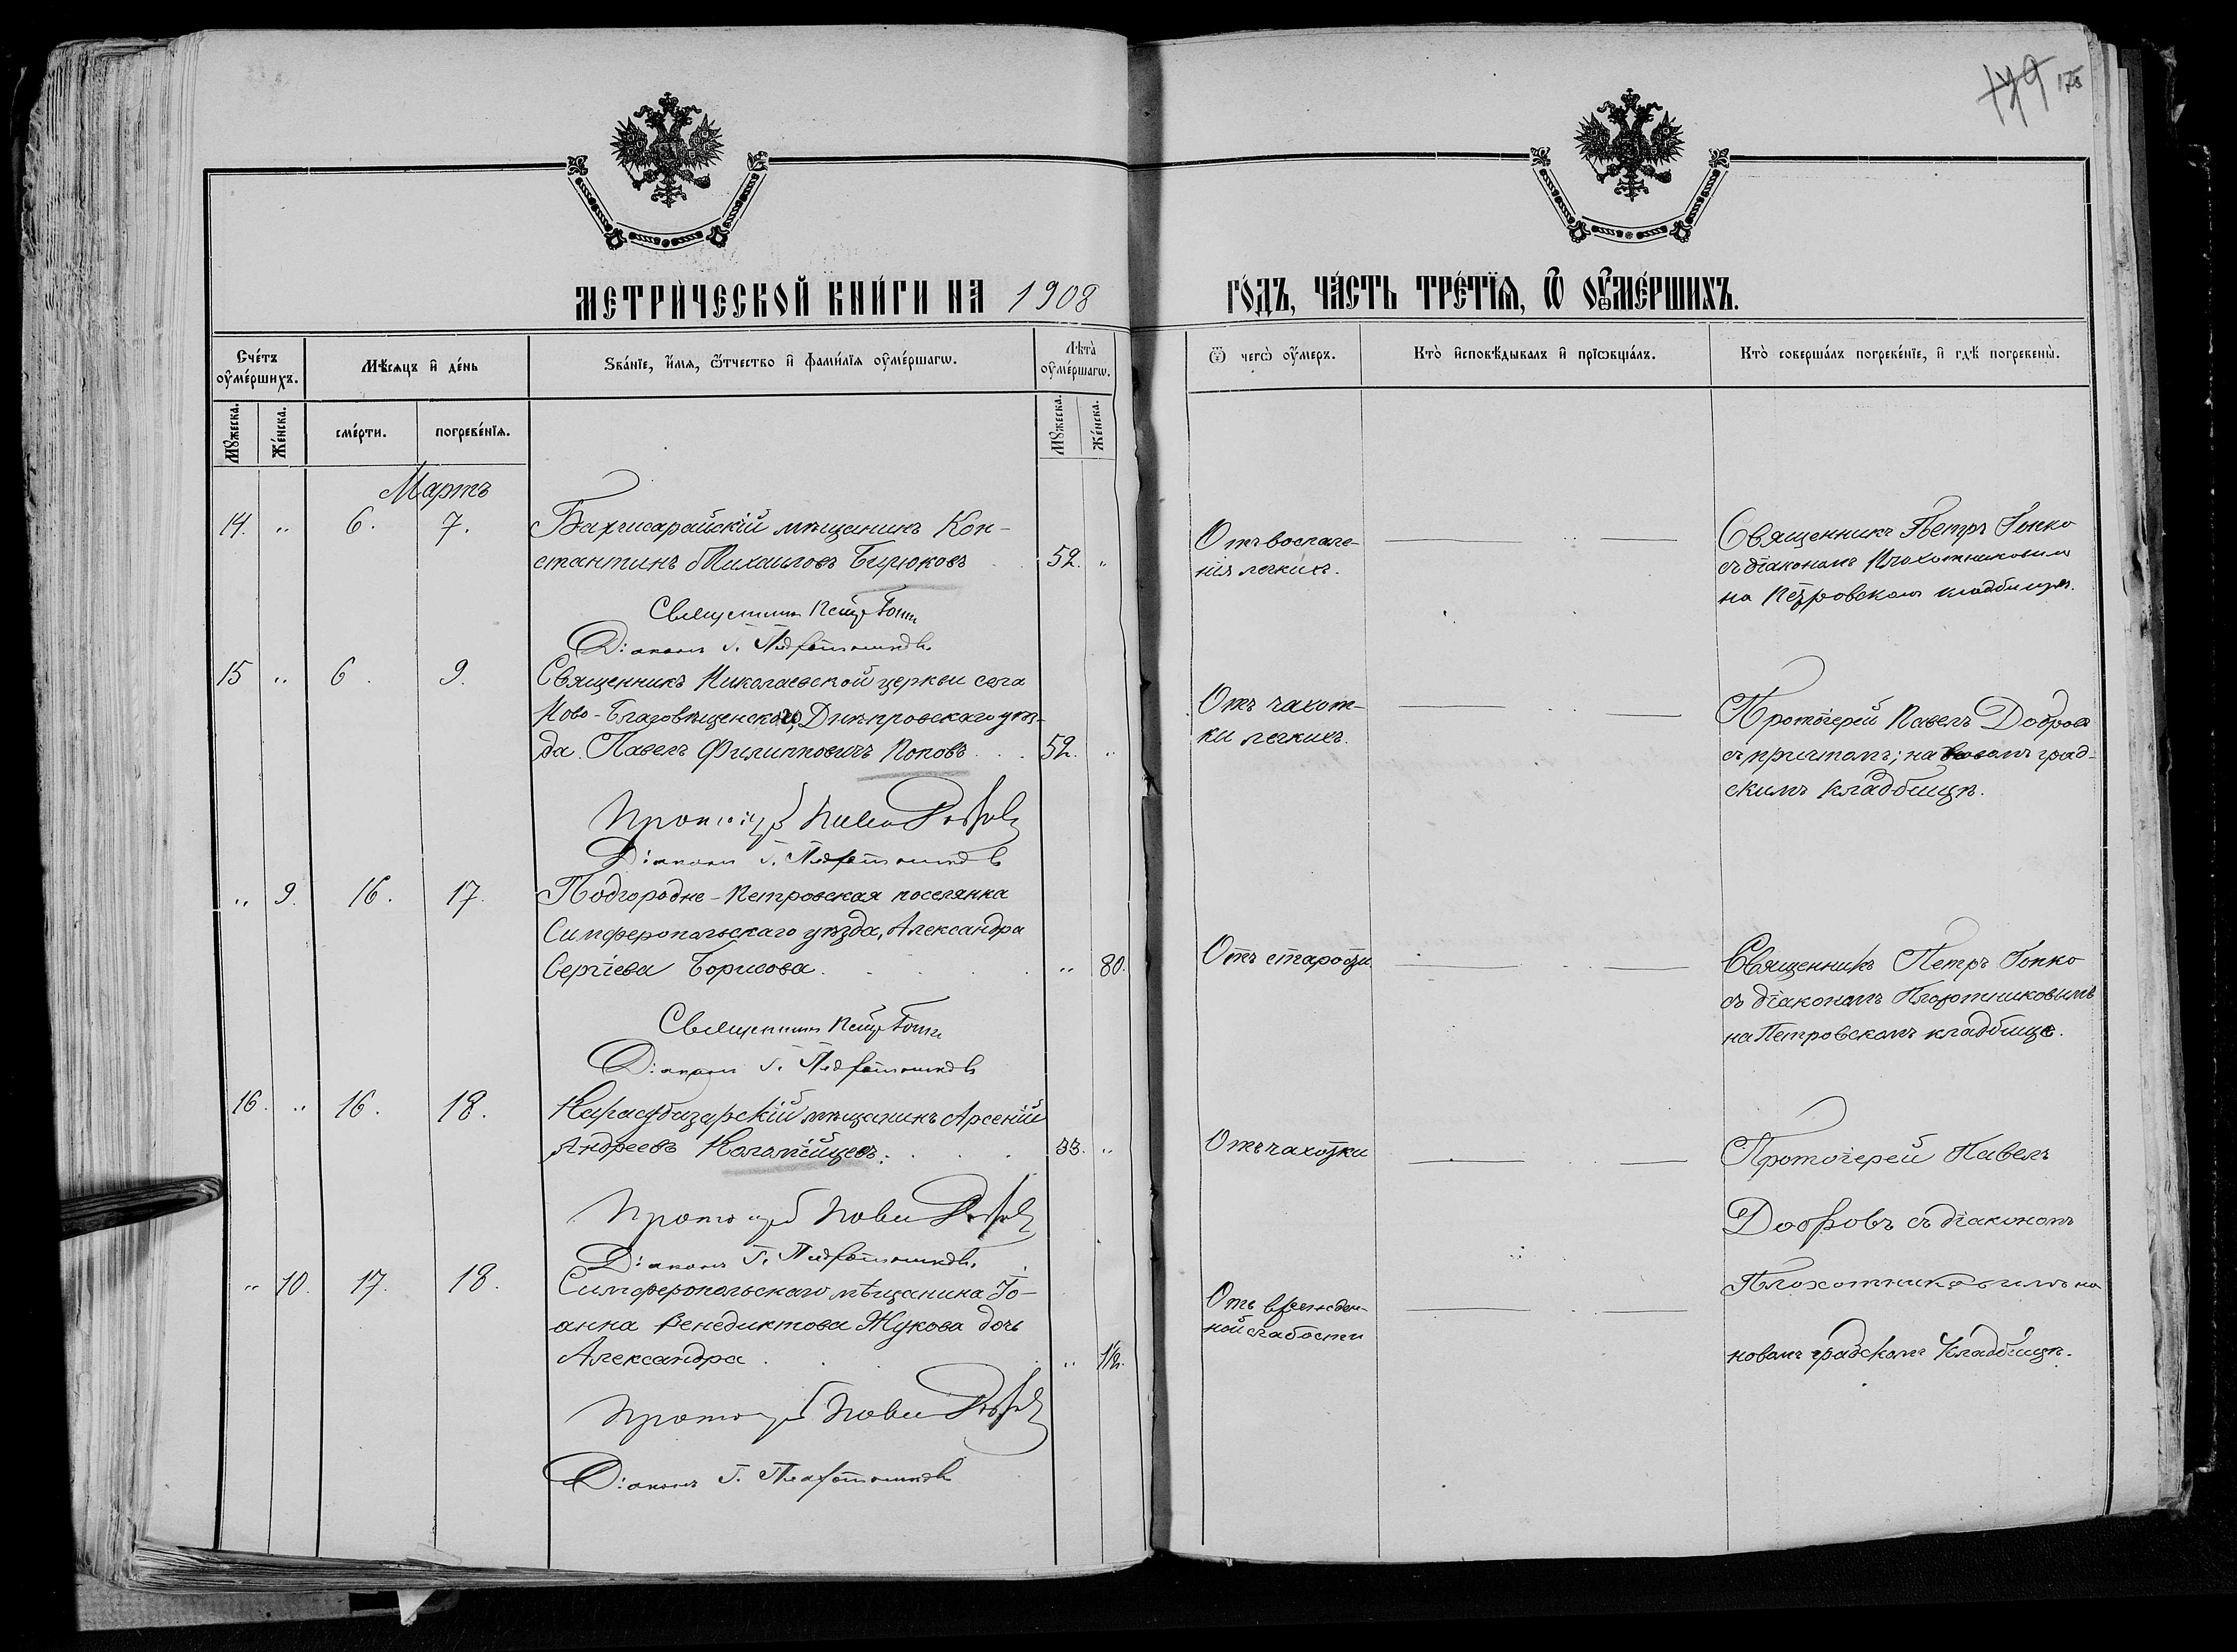 179 175
МЕТРИ́ЧЕСКОЙ КНИ́ГИ НА 1908
ГО́ДЪ, ЧА́СТЬ ТРЕ́ТЇѦ, Ѡ ОУ҆МЕ́РШИХЪ.
Сче́тъ оу҆ме́ршихъ.
Мѣ́сѧцъ и҆ де́нь
Ѕва́нїе, и҆́мѧ, ѻ҆́тчество и҆ фами́лїѧ оу҆ме́ршагѡ.
Лѣта̀ оу҆ме́ршагѡ.
Ѿ чегѡ̀ оу҆́меръ.
Кто̀ и҆сповѣ́дывалъ и҆ прїѡбща́лъ.
Кто̀ соверша́лъ погребе́нїе, и҆ гдѣ̀ погребены̀.
Мꙋ́жеска.
Же́нска.
сме́рти.
погребе́нїѧ.
Мꙋ́жеска.
Же́нска.
Мартъ
14. " 6. 7. Бахчисарайскій мѣщанинъ Кон-
стантинъ Михаиловъ Бирюковъ 52. "
Священникъ Петръ Гопко
Діаконъ Г. Плохотниковъ
Отъ воспале-
нія легкихъ.
Священникъ Петръ Гопко
съ діакономъ Плохотниковымъ
на Петровскомъ кладбищѣ.
15 " 6. 9. Священникъ Николаевской церкви села
Ново-Благовѣщенскаго, Днѣпровскаго уѣз-
да. Павелъ Филипповичъ Поповъ 52. "
Протоіерей Павелъ Добровъ
Діаконъ Г. Плохотниковъ
Отъ чахот-
ки легкихъ.
Протоіерей Павелъ Добровъ
съ причтомъ; на новомъ град-
скимъ кладбищѣ.
" 9. 16. 17. Подгородне-Петровская поселянка
Симферопольскаго уѣзда, Александра
Сергіева Борисова. " 80.
Священникъ Петръ Гопко
Діаконъ Г. Плохотниковъ
Отъ старости.
Священникъ Петръ Гопко
съ діакономъ Плохотниковымъ
на Петровскомъ кладбище.
16. " 16. 18. Карасубазарскій мѣщанинъ Арсеній
Андреевъ Коломійцевъ. 33. "
Протоіерей Павелъ Добровъ
Діаконъ Г. Плохотниковъ
Отъ чахотки
Протоіерей Павелъ
Добровъ съ діакономъ
Плохотниковымъ на
новомъ градскомъ кладбищѣ.
" 10. 17. 18. Симферопольскаго мѣщанина Іо-
анна Венедиктова Жукова дочь
Александра " 1½.
Протоіерей Павелъ Добровъ
Діаконъ Г. Плохотниковъ
Отъ врожден-
ной слабости